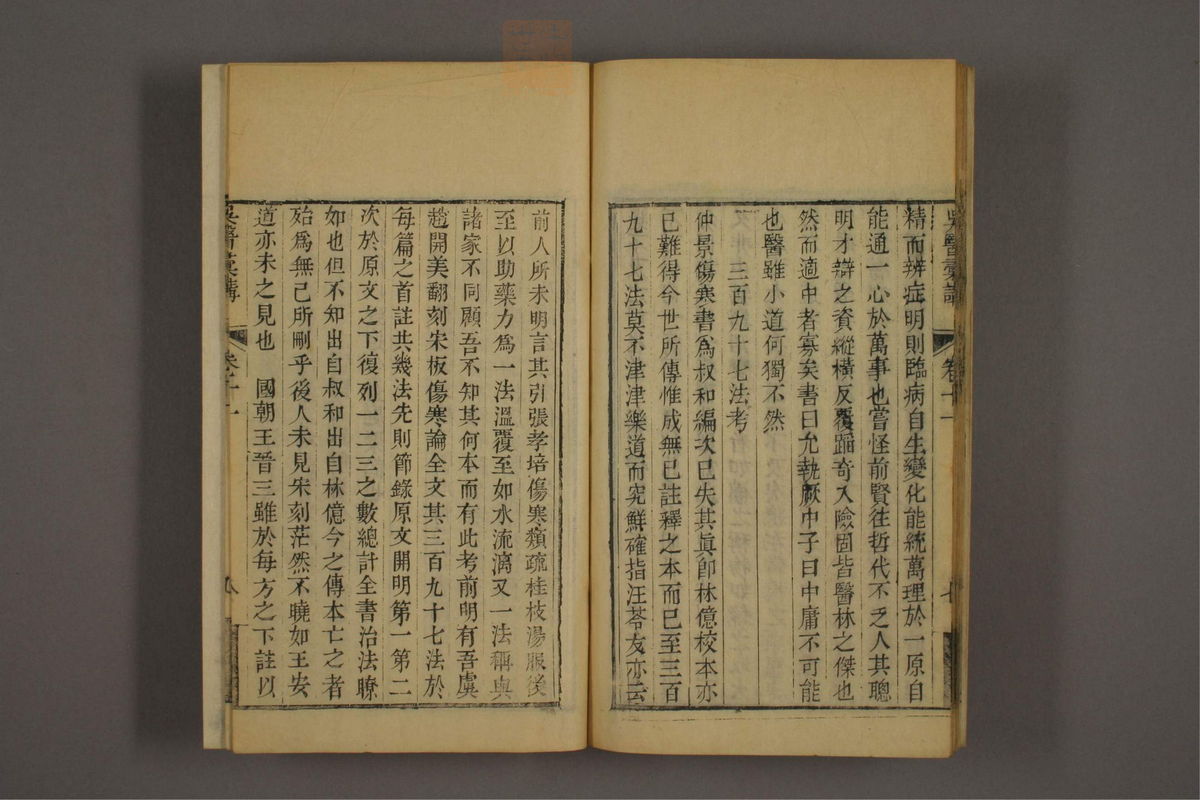 吳醫彙講
卷十一
七
精而辨症明則臨病自生變化能統萬理於一原自
能通一心於萬事也嘗怪前賢往哲代不乏人其聰
明才辯之資縱橫反覆蹈奇入險固皆醫林之傑也
然而適中者寡矣書曰允執厥中子曰中庸不可能
也醫雖小道何獨不然
三百九十七法考
仲景傷寒書爲叔和編次已失其眞卽林億校本亦
已難得今世所傳惟成無已註釋之本而已至三百
九十七法莫不津津樂道而究鮮確指汪苓友亦云
前人所未明言其引張孝培傷寒類疏桂枝湯服後
至以助藥力爲一法溫覆至如水流漓又一法稱與
諸家不同願吾不知其何本而有此考前明有吾虞
趙開美翻刻宋板傷寒論全文其三百九十七法於
每篇之首註共幾法先則節錄原文開明第一第二
次於原文之下復列一二三之數總計全書治法瞭
如也但不知出自叔和出自林億今之傳本亡之者
殆爲無己所刪乎後人未見宋刻茫然不曉如王安
道亦未之見也　國朝王晉三雖於每方之下註以
吳醫彙講
卷十一
八